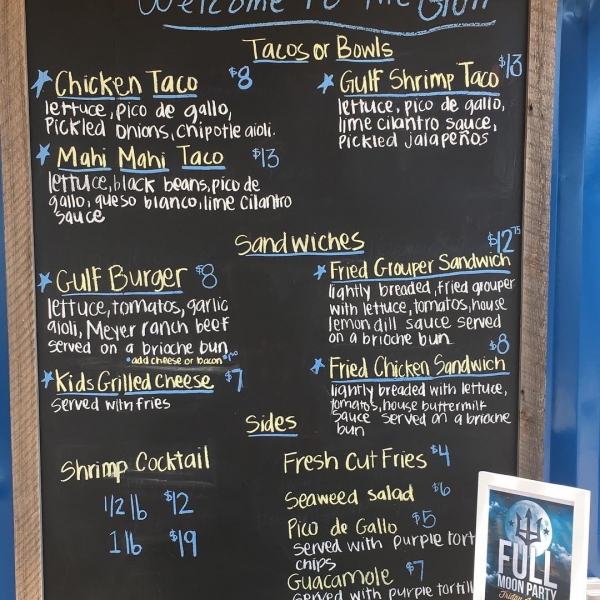 Welcome To The Gulf
Tacos or Bowls
Chicken Taco $8
lettuce, pico de gallo,
Pickled onions, chipotle aioli.
Mahi Mahi Taco $13
lettuce, black beans, pico de
gallo, queso blanco, lime cilantro
sauce
Gulf Shrimp Taco $13
lettuce, pico de gallo,
lime cilantro sauce,
pickled jalapeños
Sandwiches
Gulf Burger $8
lettuce, tomatos, garlic
aioli, Meyer ranch beef
served on a brioche bun
*add cheese or bacon*
Kids Grilled Cheese $7
served with fries
$12.75
Fried Grouper Sandwich
lightly breaded, fried grouper
with lettuce, tomatos, house
lemon dill sauce served
on a brioche bun
$8
Fried Chicken Sandwich
lightly breaded with lettuce,
tomatos, house buttermilk
sauce served on a brioche
bun
Sides
Shrimp Cocktail
1/2 lb $12
1 lb $19
Fresh Cut Fries $4
Seaweed Salad $6
Pico de Gallo $5
served with purple tort
chips
Guacamole $7
served with purple tortill
FULL
MOON PARTY
Friday